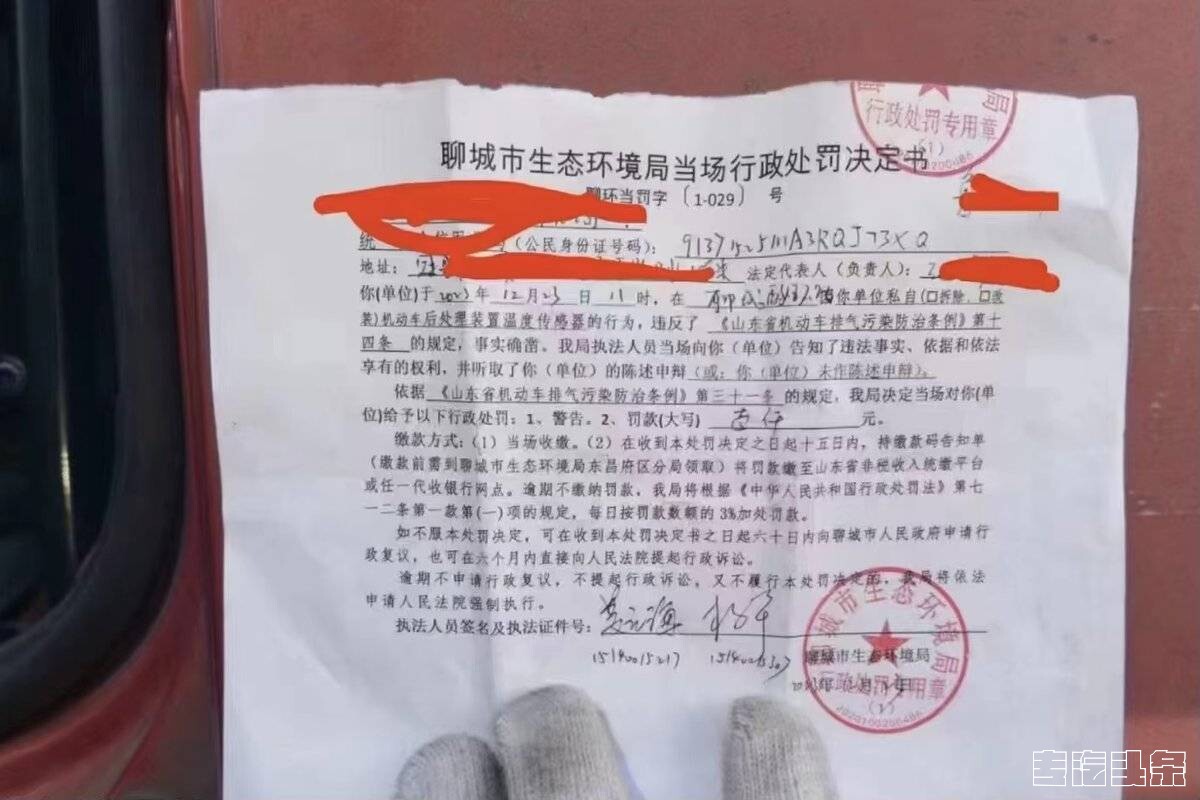 局
行政处罚专用章
(1)
聊城市生态环境局当场行政处罚决定书
聊环当罚字〔1-029〕号
(公民身份证号码):
地址: 法定代表人(负责人):
你(单位)于2023年12月23日11时,在 你单位私自(□拆除、□改
装)机动车后处理装置温度传感器的行为,违反了《山东省机动车排气污染防治条例》第十
四条的规定,事实确凿。我局执法人员当场向你(单位)告知了违法事实、依据和依法
享有的权利,并听取了你(单位)的陈述申辩(或:你(单位)未作陈述申辩)。
依据《山东省机动车排气污染防治条例》第三十一条的规定,我局决定当场对你(单
位)给予以下行政处罚:1、警告。2、罚款(大写) 元。
缴款方式:(1)当场收缴。(2)在收到本处罚决定之日起十五日内,持缴款码告知单
(缴款前需到聊城市生态环境局东昌府区分局领取)将罚款缴至山东省非税收入统缴平台
或任一代收银行网点。逾期不缴纳罚款,我局将根据《中华人民共和国行政处罚法》第七
十二条第一款第(一)项的规定,每日按罚款数额的3%加处罚款。
如不服本处罚决定,可在收到本处罚决定书之日起六十日内向聊城市人民政府申请行
政复议,也可在六个月内直接向人民法院提起行政诉讼。
逾期不申请行政复议,不提起行政诉讼,又不履行本处罚决定的,我局将依法
申请人民法院强制执行。
执法人员签名及执法证件号:
15140015217
聊城市生态环境局
聊城市生态环境局
行政处罚专用章
专汽头条